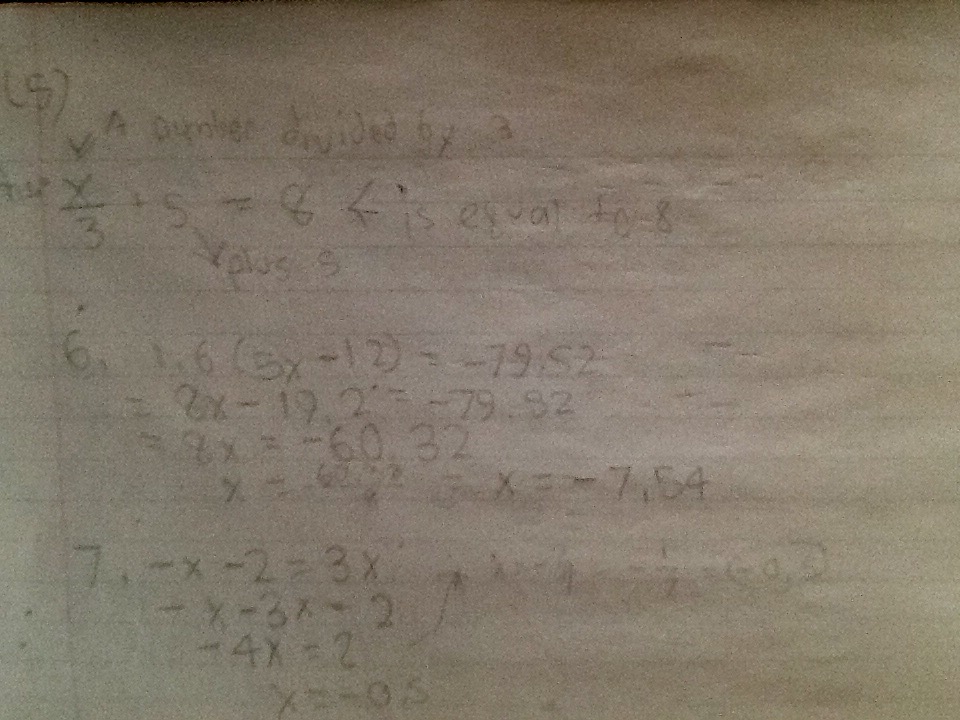 (8)
A number divided by 3
x/3 + 5 = 8 ← is equal to 8
plus 5
6. 1.6 (5x - 12) = -79.52
= 8x - 19.2 = -79.52
= 8x = -60.32
x = = x = -7.54
7. -x - 2 = 3x
- x - 3x = 2
-4x = 2
x = -0.5